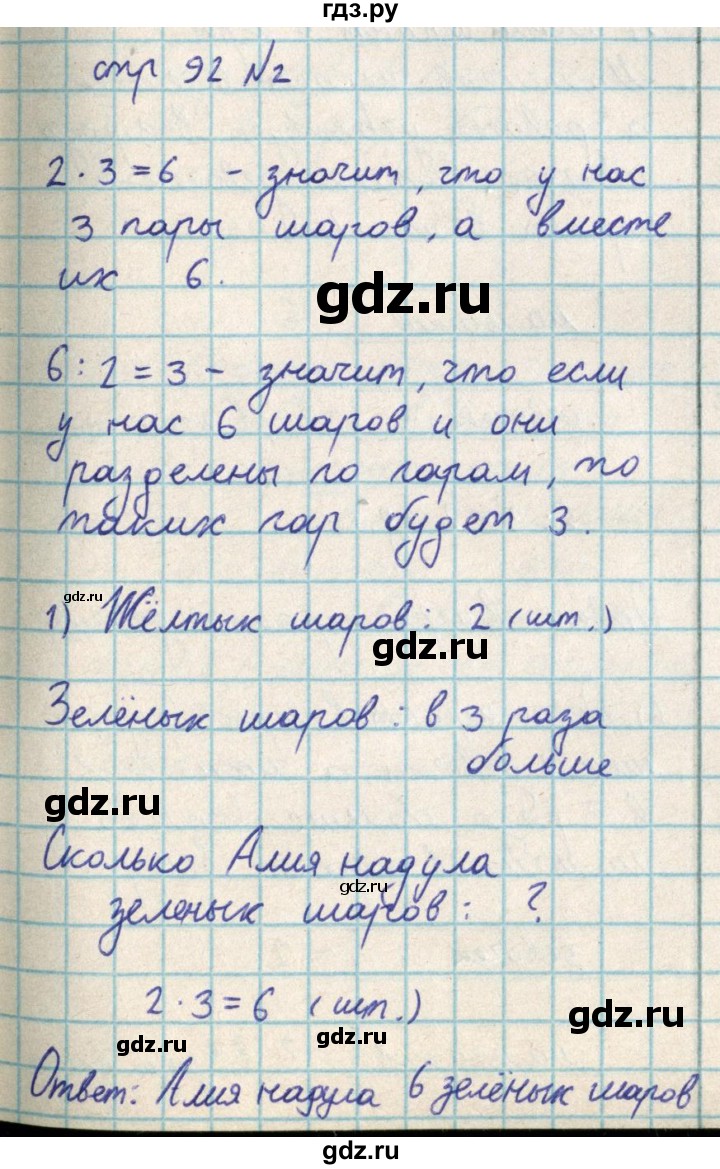 гдз.ру
стр 92 №2
2 · 3 = 6 - значит, что у нас
3 пары шаров, а вместе
их 6.
gdz.ru
6 : 2 = 3 - значит, что если
у нас 6 шаров и они
разделены по парам, то
таких пар будет 3.
gdz.ru
1) Жёлтых шаров: 2 (шт.)
gdz.ru
Зелёных шаров: в 3 раза
больше
gdz.ru
Сколько Алия надула
gdz.ru
зеленых шаров: ?
2 · 3 = 6 (шт.)
gdz.ru
gdz.ru
gdz.ru
Ответ: Алия надула 6 зелёных шаров
gdz.ru